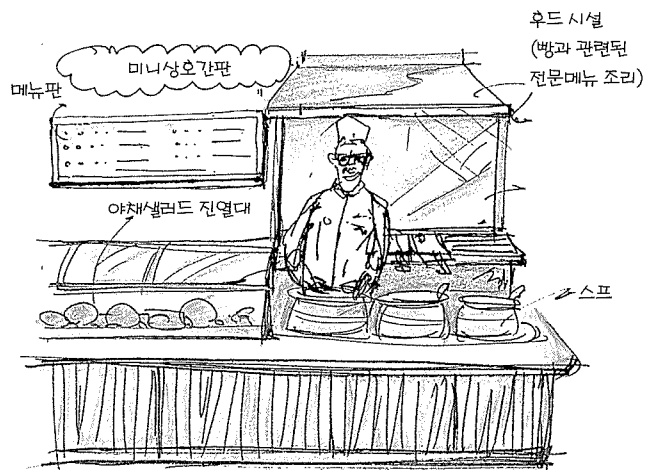 후드 시설
(빵과 관련된
전문메뉴 조리)
미니상호간판
메뉴판
야채샐러드 진열대
스프